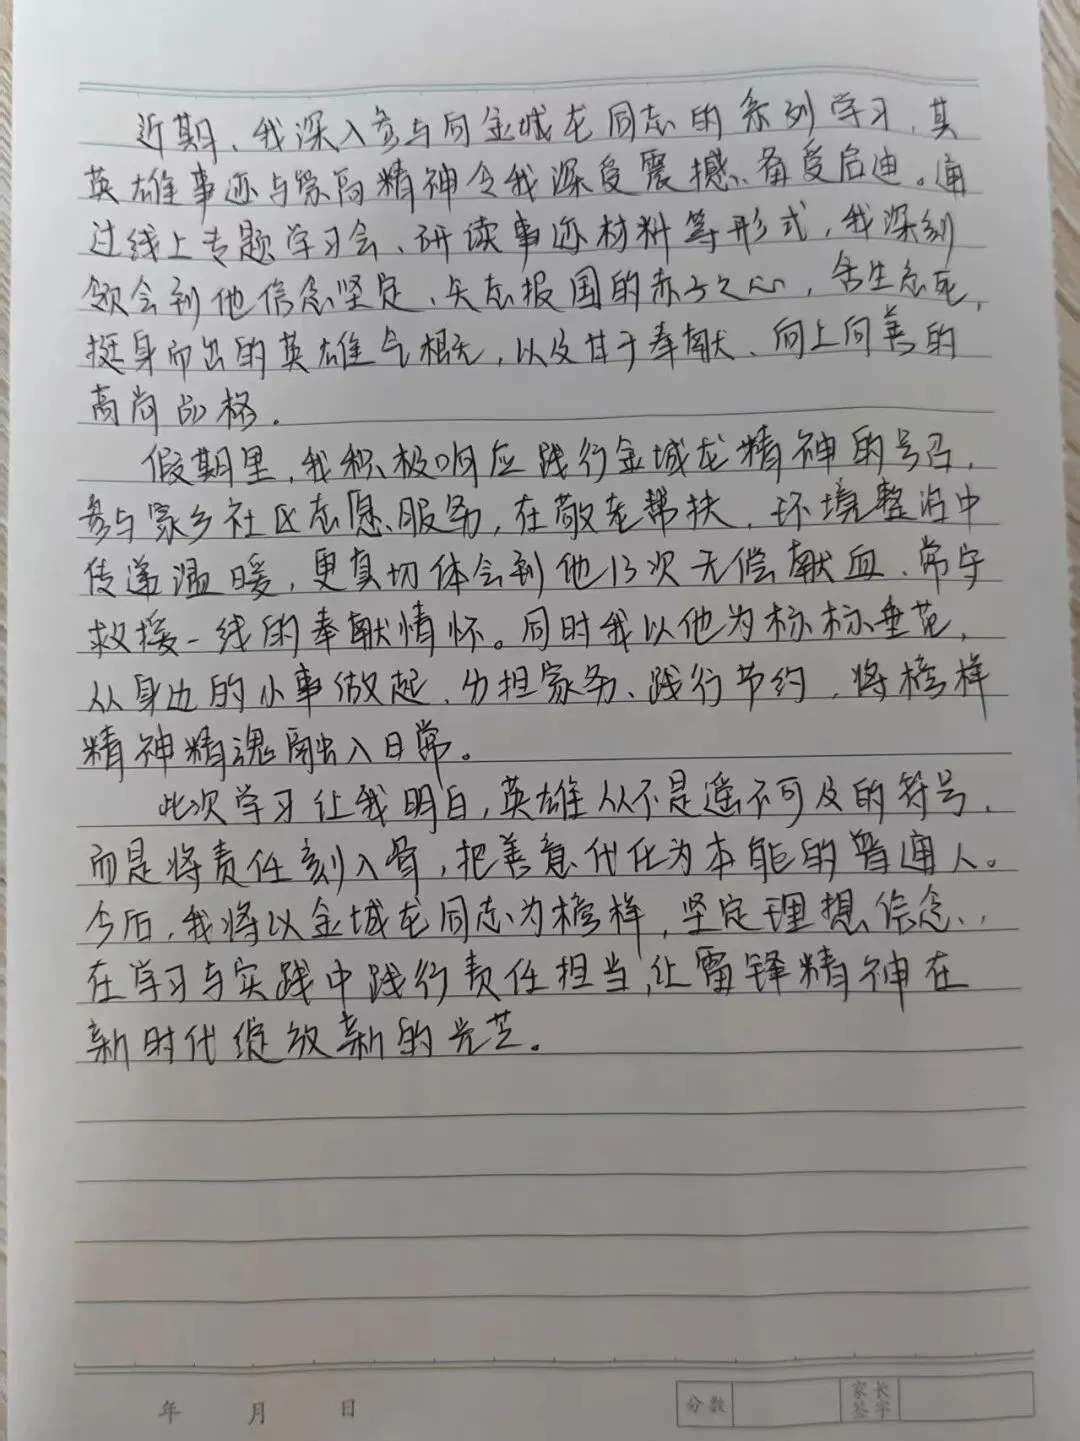 近期，我深入参与向金城龙同志的系列学习，其
英雄事迹与崇高精神令我深受震撼、备受启迪。通
过线上专题学习会、研读事迹材料等形式，我深刻
领会到他信念坚定、矢志报国的赤子之心，舍生忘死，
挺身而出的英雄气概，以及甘于奉献、向上向善的
高尚品格。
假期里，我积极响应践行金城龙精神的号召，
参与家乡社区志愿服务，在敬老帮扶、环境整治中
传递温暖，更真切体会到他13次无偿献血、常守
救援一线的奉献情怀。同时我以他为标标垂范，
从身边的小事做起，分担家务、践行节约，将榜样
精神精魂融入日常。
此次学习让我明白，英雄从不是遥不可及的符号，
而是将责任刻入骨，把善意代化为本能的普通人。
今后，我将以金城龙同志为榜样，坚定理想信念，
在学习与实践中践行责任担当，让雷锋精神在
新时代绽放新的光芒。
年 月 日
分数
家长
签字